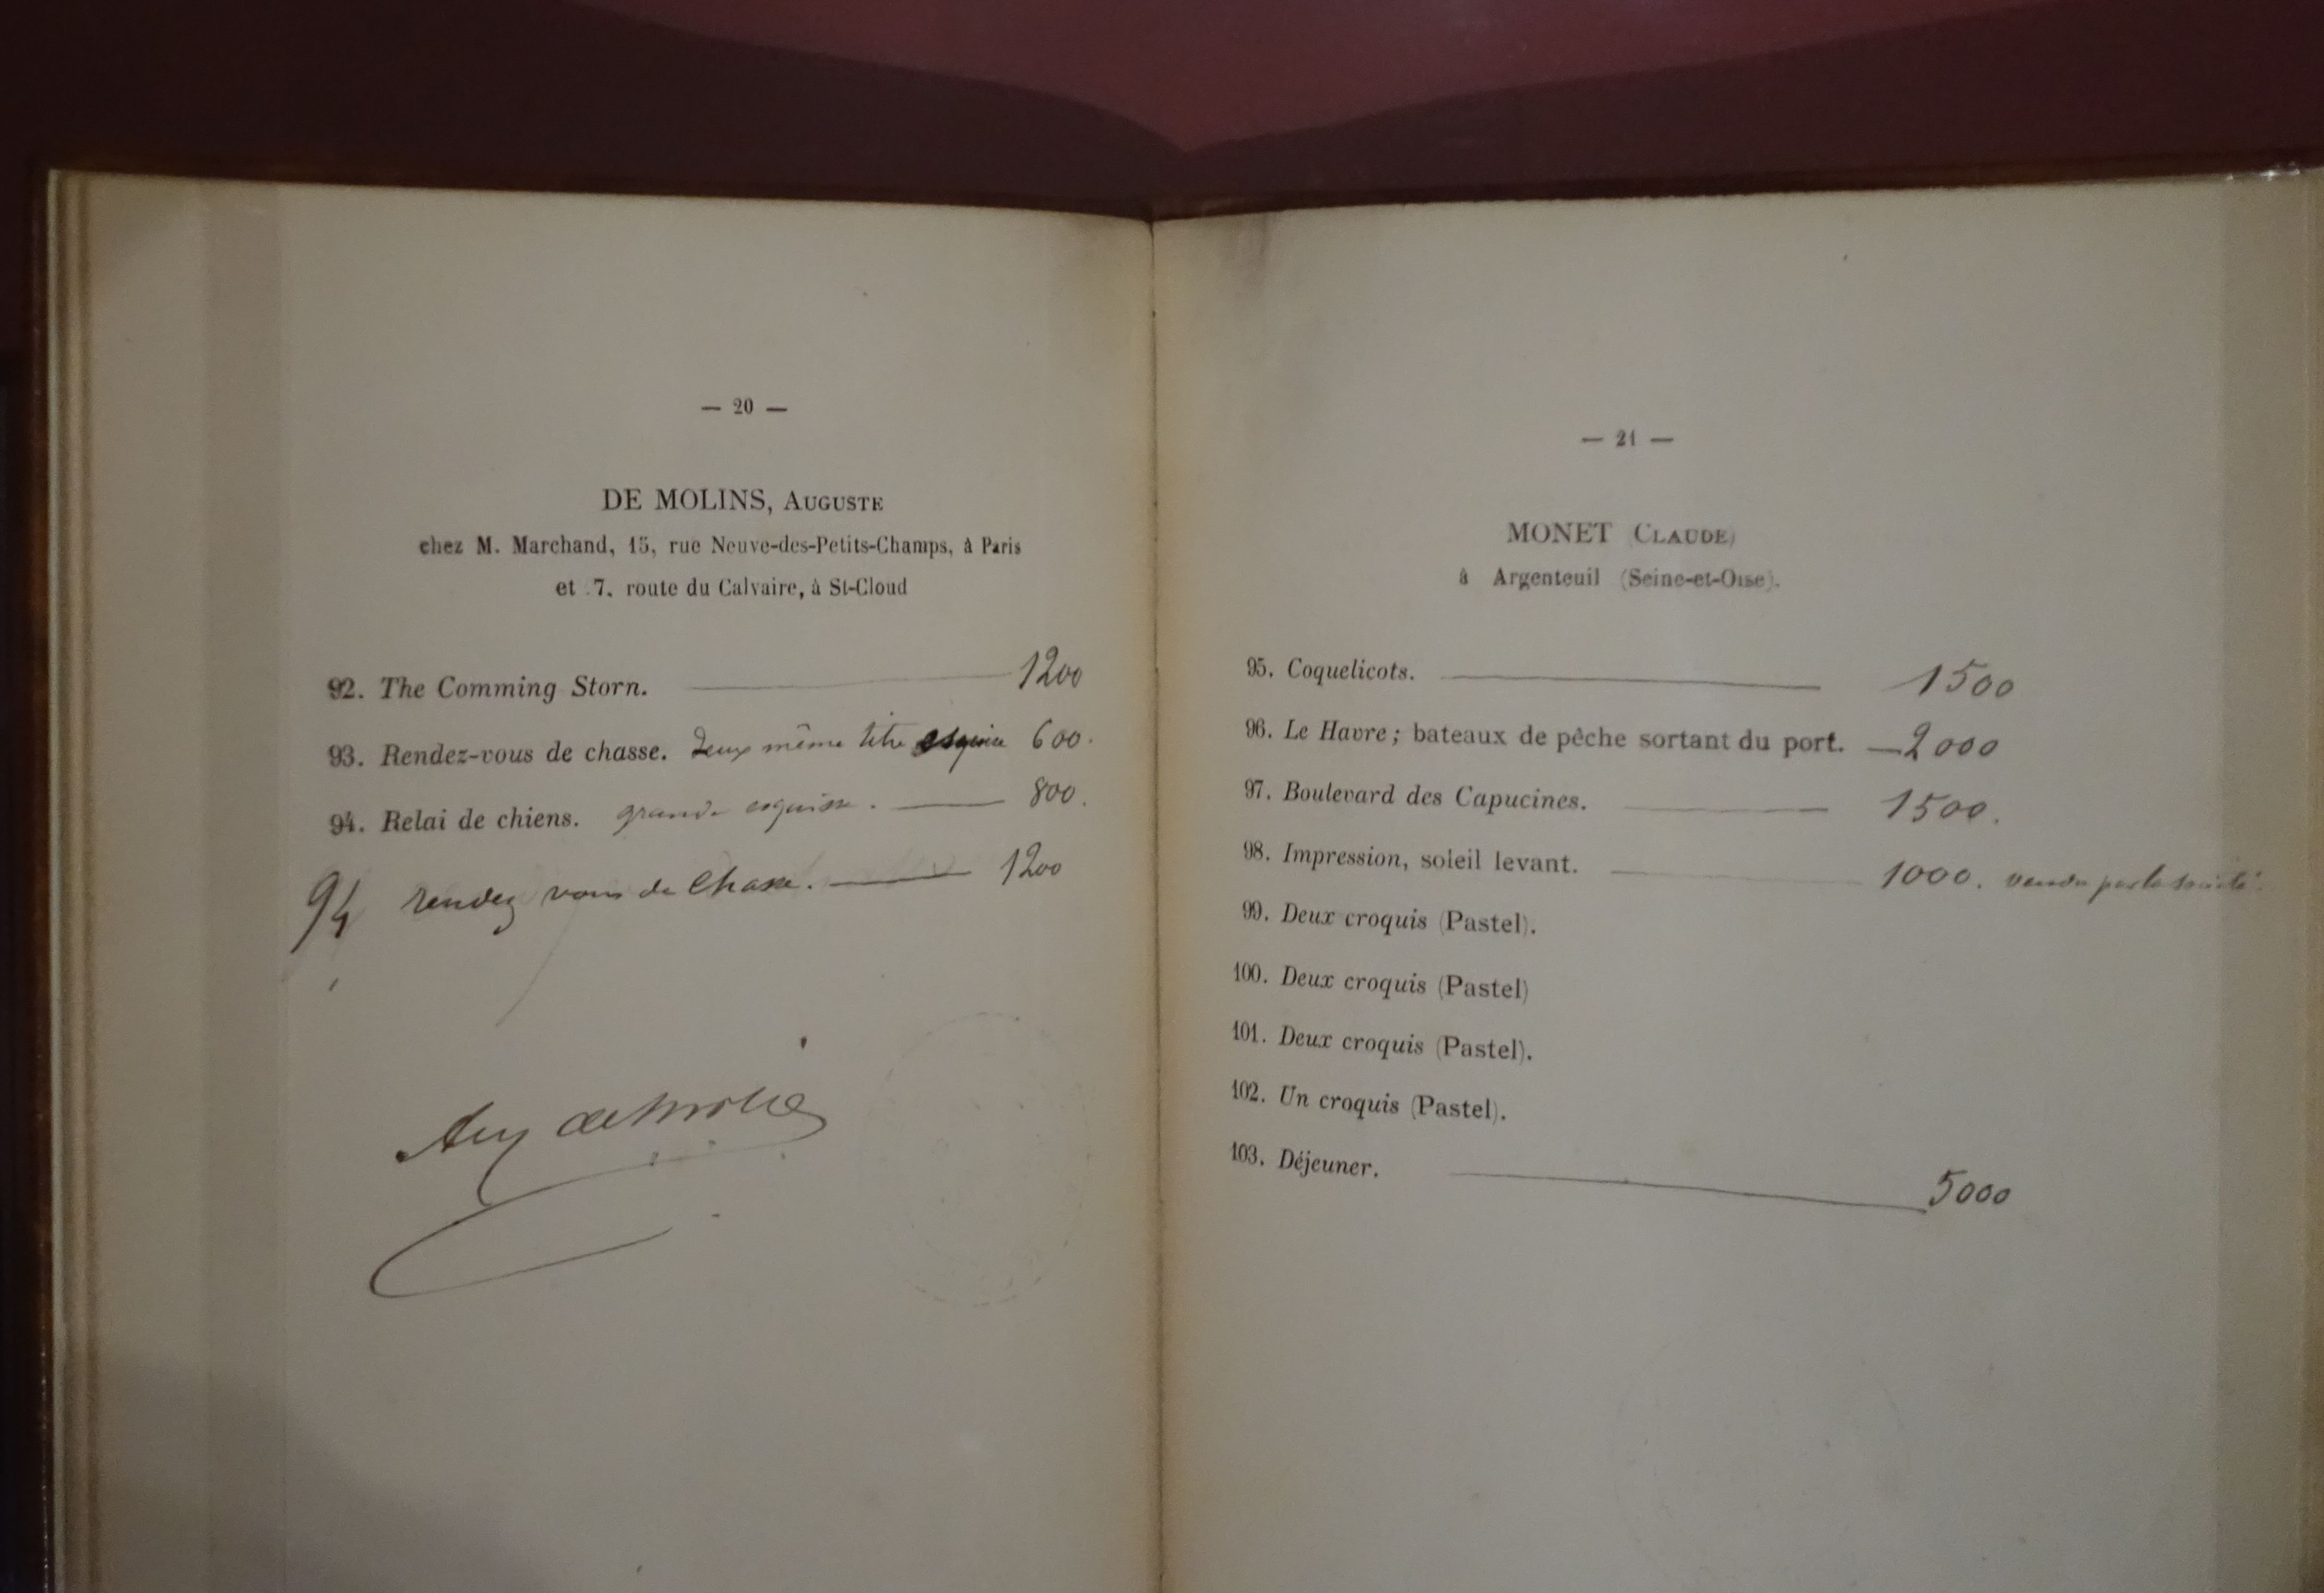 — 20 —
DE MOLINS, AUGUSTE
chez M. Marchand, 15, rue Neuve-des-Petits-Champs, à Paris
et 7, route du Calvaire, à St-Cloud
92. The Comming Storn. 1200
93. Rendez-vous de chasse. Deux même titre esquisse 600.
94. Relai de chiens. grande esquisse. 800.
94 rendez vous de Chasse. 1200
Aug de Molins
— 21 —
MONET (CLAUDE)
à Argenteuil (Seine-et-Oise).
95. Coquelicots. 1500
96. Le Havre; bateaux de pêche sortant du port. — 2000
97. Boulevard des Capucines. 1500.
98. Impression, soleil levant. 1000. vendu par la société.
99. Deux croquis (Pastel).
100. Deux croquis (Pastel)
101. Deux croquis (Pastel).
102. Un croquis (Pastel).
103. Déjeuner. 5000